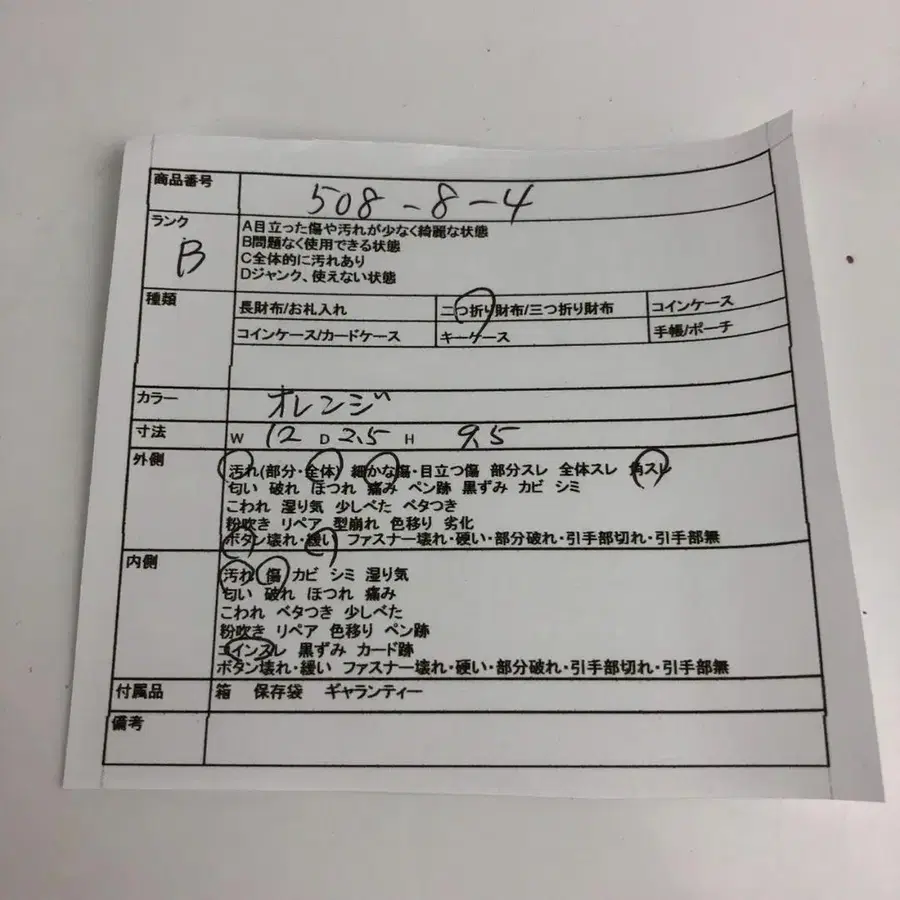 商品番号 508-8-4
ランク B
A目立った傷や汚れが少なく綺麗な状態
B問題なく使用できる状態
C全体的に汚れあり
Dジャンク、使えない状態
種類 長財布/お札入れ 二つ折り財布/三つ折り財布 コインケース
コインケース/カードケース キーケース 手帳/ポーチ
カラー オレンジ
寸法 W 12 D 2.5 H 9.5
外側 汚れ(部分・全体) 細かな傷・目立つ傷 部分スレ 全体スレ 角スレ
匂い 破れ ほつれ 痛み ペン跡 黒ずみ カビ シミ
こわれ 湿り気 少しべた ベタつき
粉吹き リペア 型崩れ 色移り 劣化
ボタン壊れ・緩い ファスナー壊れ・硬い・部分破れ・引手部切れ・引手部無
内側 汚れ 傷 カビ シミ 湿り気
匂い 破れ ほつれ 痛み
こわれ ベタつき 少しべた
粉吹き リペア 色移り ペン跡
コインスレ 黒ずみ カード跡
ボタン壊れ・緩い ファスナー壊れ・硬い・部分破れ・引手部切れ・引手部無
付属品 箱 保存袋 ギャランティー
備考